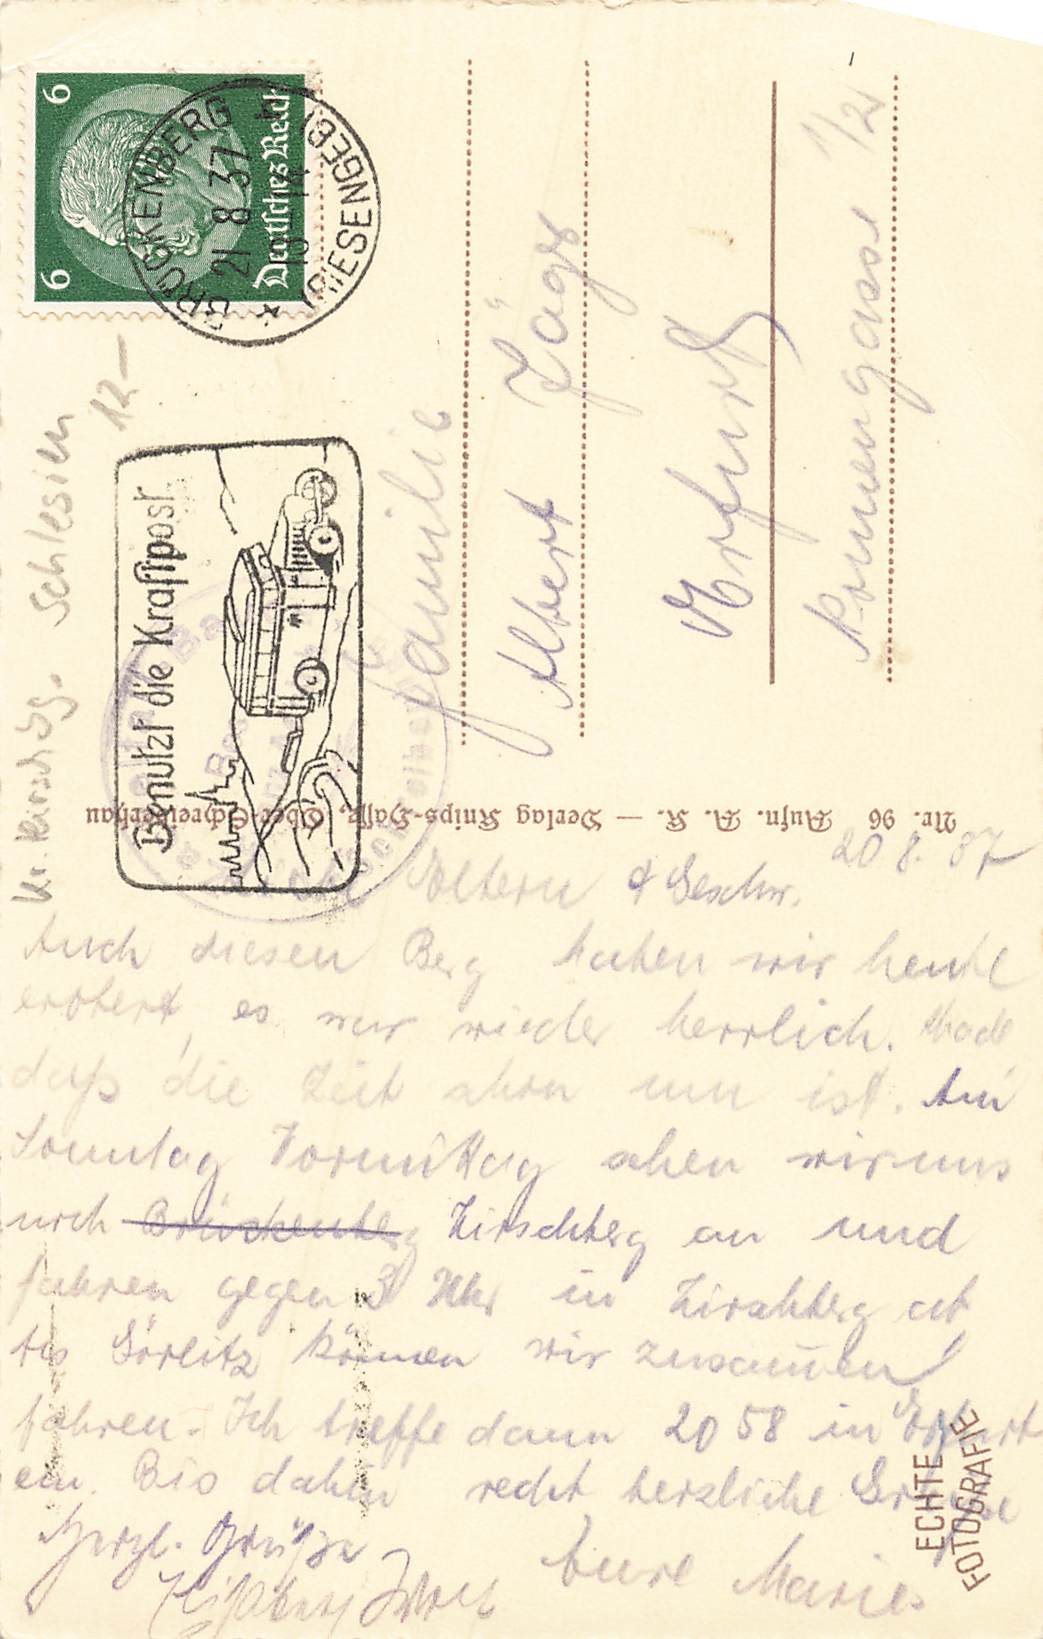 6
6
Deutsches Reich
BRÜCKENBERG
21 8 37
(RIESENGEB)
12.-
Kr. Hirschbg. Schlesien
Benutzt die Kraftpost
Familie
Albert Jäger
Erfurt
Nonnengasse 1/2
Nr. 96 Aufn. A. K. — Verlag Knips-Hasse, Ober-Schreiberhau
20 8. 37
Eltern & Geschw.
Auch diesen Berg haben wir heute
erobert, es war wieder herrlich.
daß die Zeit schon um ist. Am
Sonntag Vormittag sehen wir uns
noch Brückenberg Hirschberg an und
fahren gegen 3 Uhr in Hirschberg ab
bis Görlitz können wir zusammen
fahren. Ich treffe dann 20 58 in Erfurt
ein. Bis dahin recht herzliche Grüsse
Eure Marie
Herzl. Grüße
Elisabeth
ECHTE
FOTOGRAFIE